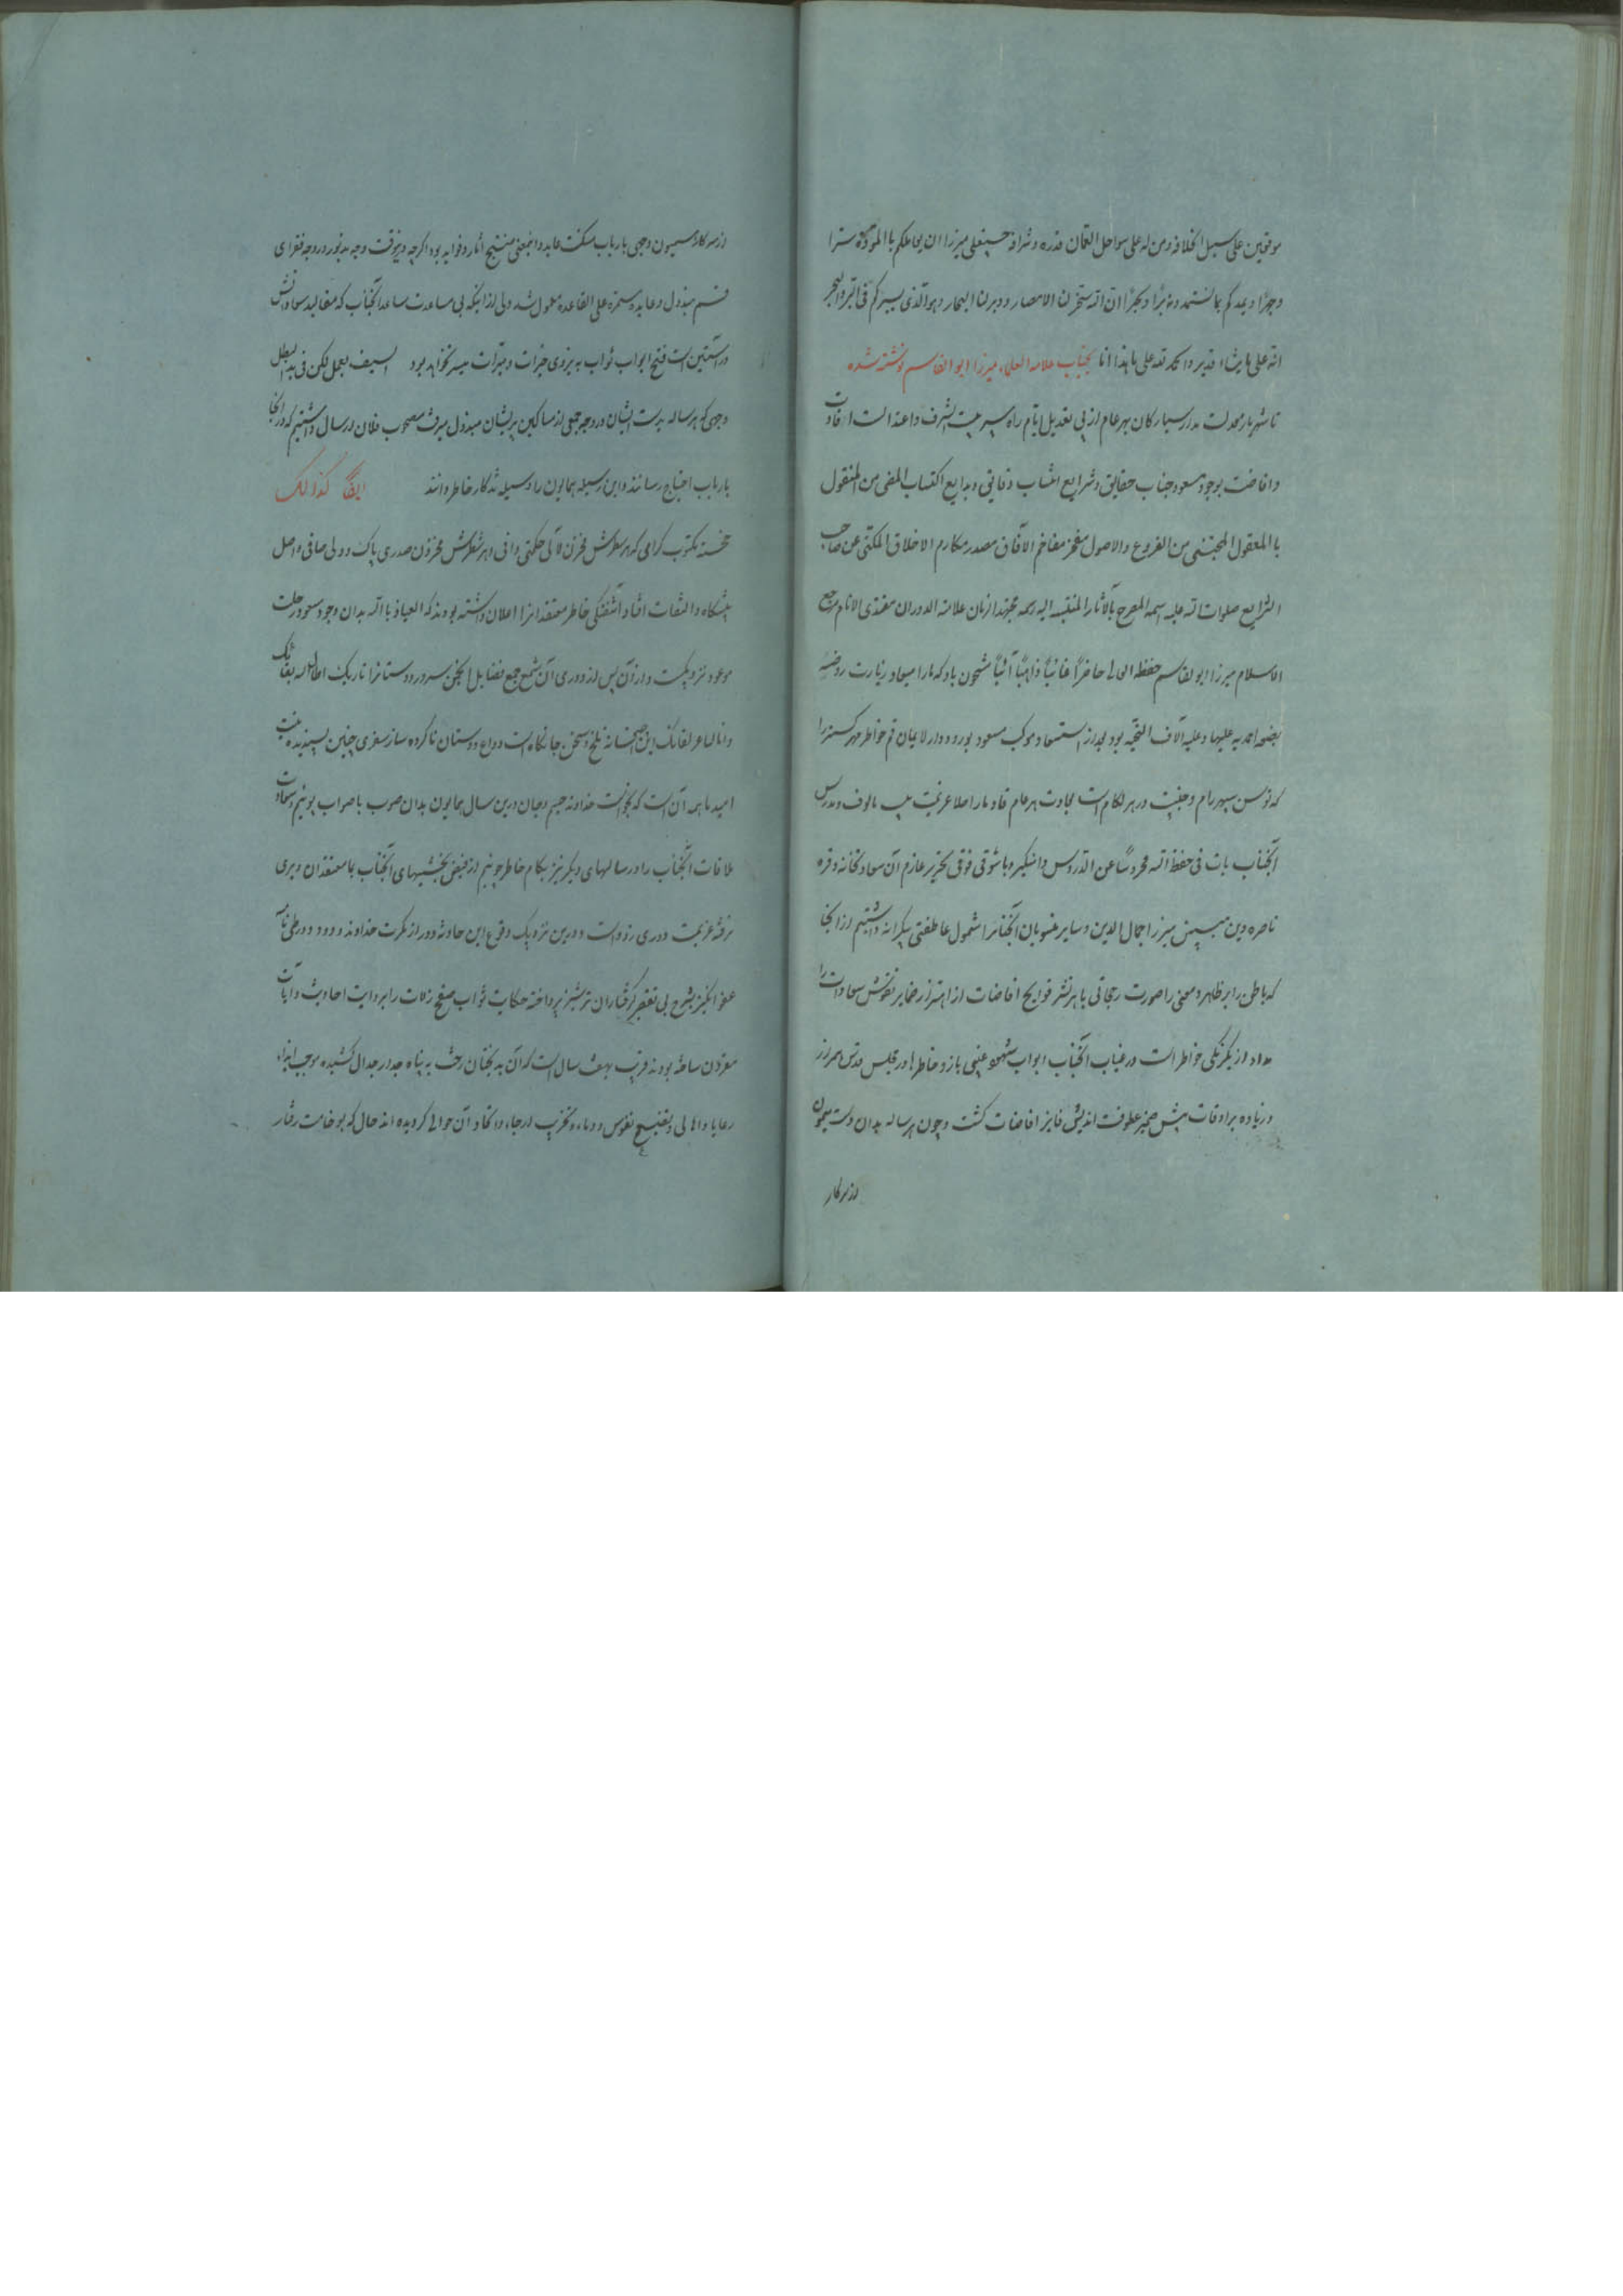 موفقین علی سبیل الخلافه ومن له علی سواحل العمان قدره وشرافة حسینعلی میرزا ان یعاملکم باالمودة سترا
وجهرًا ویمدکم بما تستمدونه برًا وبحرًا ان الله سخر لنا الامصار ودبر لنا البحار وهو الذی یسیرکم فی البر والبحر
انه علی ما یشاء قدیر والحمد لله علی ما هدانا بجناب علامه العلماء میرزا ابوالقاسم نوشته شده
تا شهریار معدلت مدار سیارکان بهر عام از پی تعدیل ایام راه سپر بیت الشرف واعتدالست افادت
وافاضت بوجود مسعود جناب حقایق وشرایع انتساب دقایق وبدایع اکتساب المفی من المنقول
باالمعقول المجتنی من الفروع والاصول مفخر مفاخم الافاق مصدر مکارم الاخلاق المکنی عن صاحب
الشرایع صلوات الله علیه اسمه المصرح بالآثار المنتسبه الیه رسمه مجتهد الزمان علامة الدوران مقتدی الانام مرجع
الاسلام میرزا ابوالقاسم حفظه الله حاضرًا غائبًا ذاهبًا آئبًا مشحون باد که ما را میعاد زیارت روضه
بضعه احمدیه علیها وعلیه آلاف التحیه بود بعد از استسعاد موکب مسعود بورود دار لایمان قم خواطر مهر کستر را
که توسن سپهر رام وجنیبت در هر لکام است بعادت هر عام فاد ما را صلا عزیمت بیت مالوف ومدرس
آنجناب بات فی حفظ الله محروسًا عن الدروس دامنکیر وبا شوقی فوق تحریر عازم آن سعادتخانه وقره
ناصره دین مبین میرزا جمال الدین وسایر منسوبان آنجناب را مشمول عاطفتی بیکرانه داشتیم از آنجا
که باطن را بر ظاهر ومعنی را صورت رجحانی باهر نشر فوایح افاضات از اهتزاز ضمایر نقوش سعادات را
مداد از یکرنکی خواطر است در غیاب آنجناب ابواب شهود غیبی باز وخاطر ما در مجلس قدس همراز
وزیاده بر اوقات پیش ضمیر عطوفت اندیش فایز افاضات کشت وچون هر ساله بدان دست میمون
از سرکار
از سرکار میمون وجهی بارباب مسکنت عاید واینمعنی منتج آثار وفواید بود اکرچه در اینوقت وجه مزبور در وجه فقرای
قم مبذول وعایده مستمره علی القاعده معمول شد ولی از اینکه بی مساعدت ساعد آنجناب که مقالید سعادتش
در آستین است فتح ابواب ثواب به نیروی خیرات ومبرات میسر نخواهد بود السیف یعمل لکن فی ید البطل
وجهی که هر ساله بدست ایشان در وجه جمعی از مساکین پریشان مبذول میرفت مصحوب فلان ارسال داشتیم که در آنجا
بارباب احتیاج رسانند واین وسیله همایون را وسیله تذکار خاطر دانند ایضًا کذالک
خجسته مکتوب کرامی که هر سطرش مخزن لآلی حکمتی وافی وهر شطرش مخزون صدری پاک ودلی صافی واصل
پیشکاه والتفات افتاد آشفتکی خاطر معتقدانرا اعلان داشته بودند که العیاذ باالله بدان وجود مسعود رحلت
موعود نزدیکست واز آن پس از دوری آن شمع جمع فضایل انجمن سرور دوستانرا تاریک اطال الله بقائک
وانالنا عز لقائک این چه افسانه تلخ وسخن جانکاه است وداع دوستان ناکرده ساز سفری چنین پسندیده نیست
امید ما به آن است که بخواست خداوند جسم وجان درین سال همایون بدان صوب باصواب پوئیم وسعادت
ملاقات آنجناب را در سالهای دیکر نیز بکام خاطر جوئیم از فیض بخشیهای آنجناب با معتقدان دیری
نرفته عزیمت دوری نه رواست ودرین نزدیک وقوع این حادثه دور از مکرمت خداوند ودود ودر طی نامه
عفو انکیز بشرح بی تقصیر کرفتاران ترشیز پرداخته حکایت ثواب صفح زلات را بروایت احادیث وآیات
مقرون ساخته بودند قریب بهفت سال است که آن بدبختان رخت به پناه جدار جدال کشیده موجب ایذاء
رعایا واهالی وتضییع نفوس ودماء وتخریب ارجاء وانحاء آن حوالی کردیده اند حال که بوخامت رفتار